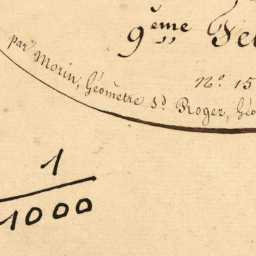 9ème Fe
par Morin, Géomètre Sr. Roger, Géo
No. 15
1
1000